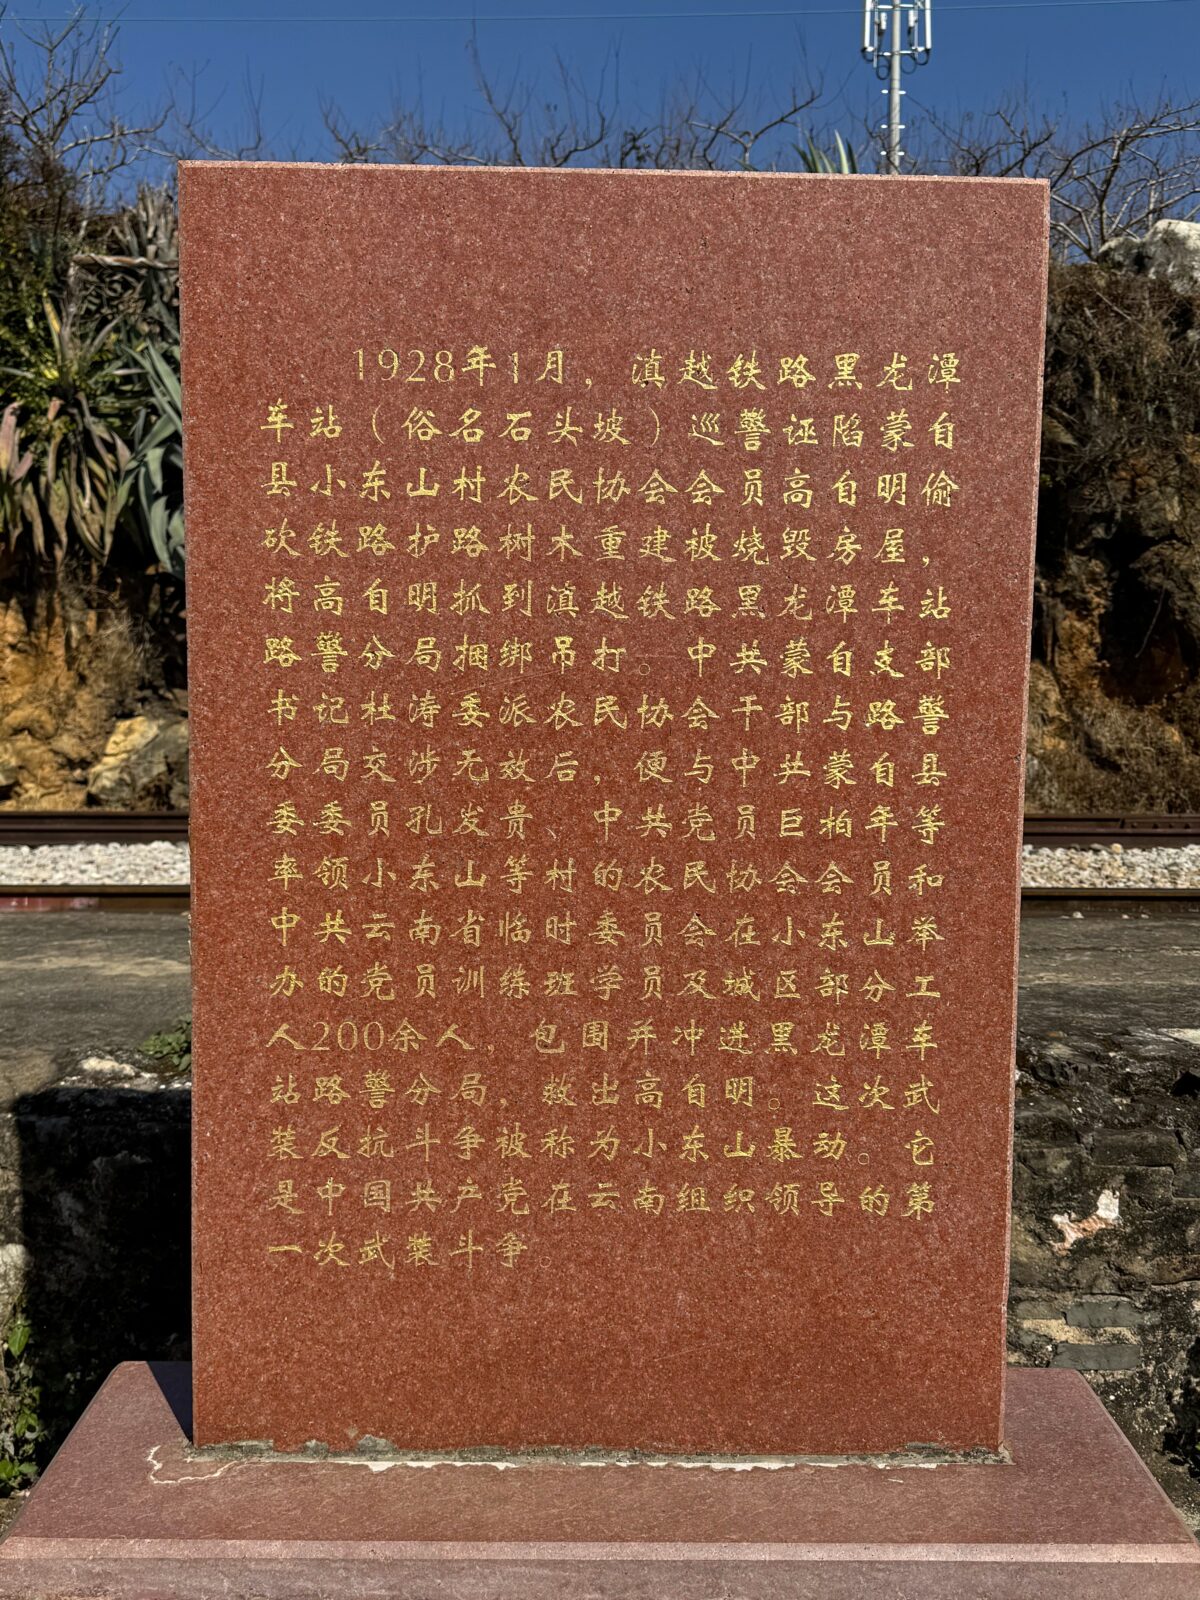 1928年1月，滇越铁路黑龙潭
车站（俗名石头坡）巡警诬陷蒙自
县小东山村农民协会会员高自明偷
砍铁路护路树木重建被烧毁房屋，
将高自明抓到滇越铁路黑龙潭车站
路警分局捆绑吊打。中共蒙自支部
书记杜涛委派农民协会干部与路警
分局交涉无效后，便与中共蒙自县
委委员孔发贵、中共党员巨柏年等
率领小东山等村的农民协会会员和
中共云南省临时委员会在小东山举
办的党员训练班学员及城区部分工
人200余人，包围并冲进黑龙潭车
站路警分局，救出高自明。这次武
装反抗斗争被称为小东山暴动。它
是中国共产党在云南组织领导的第
一次武装斗争。